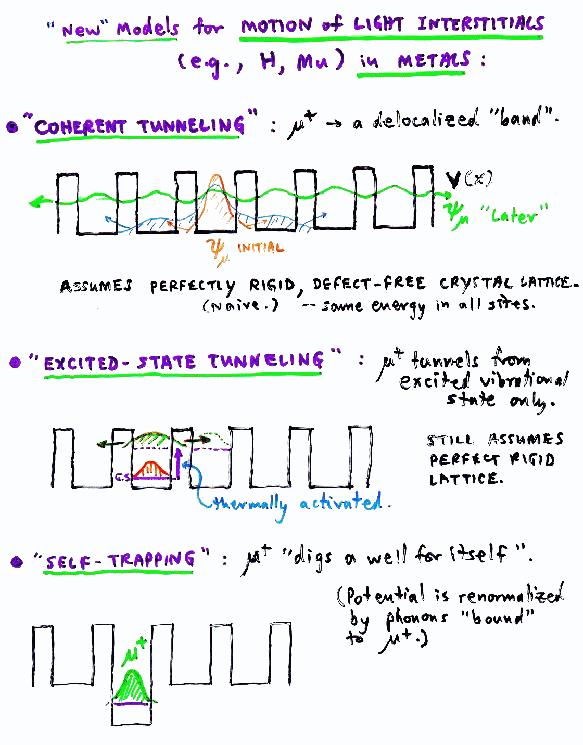 "New" Models for MOTION of LIGHT INTERSTITIALS
(e.g., H, Mu) in METALS:
• "COHERENT TUNNELING" : μ⁺ → a delocalized "band".
V(x)
ψμ "Later"
ψμ INITIAL
ASSUMES PERFECTLY RIGID, DEFECT-FREE CRYSTAL LATTICE.
(Naive.) -- same energy in all sites.
• "EXCITED-STATE TUNNELING" : μ⁺ tunnels from
excited vibrational
state only.
STILL ASSUMES
PERFECT RIGID
LATTICE.
G.S.
thermally activated.
• "SELF-TRAPPING" : μ⁺ "digs a well for itself".
(Potential is renormalized
by phonons "bound"
to μ⁺.)
μ⁺